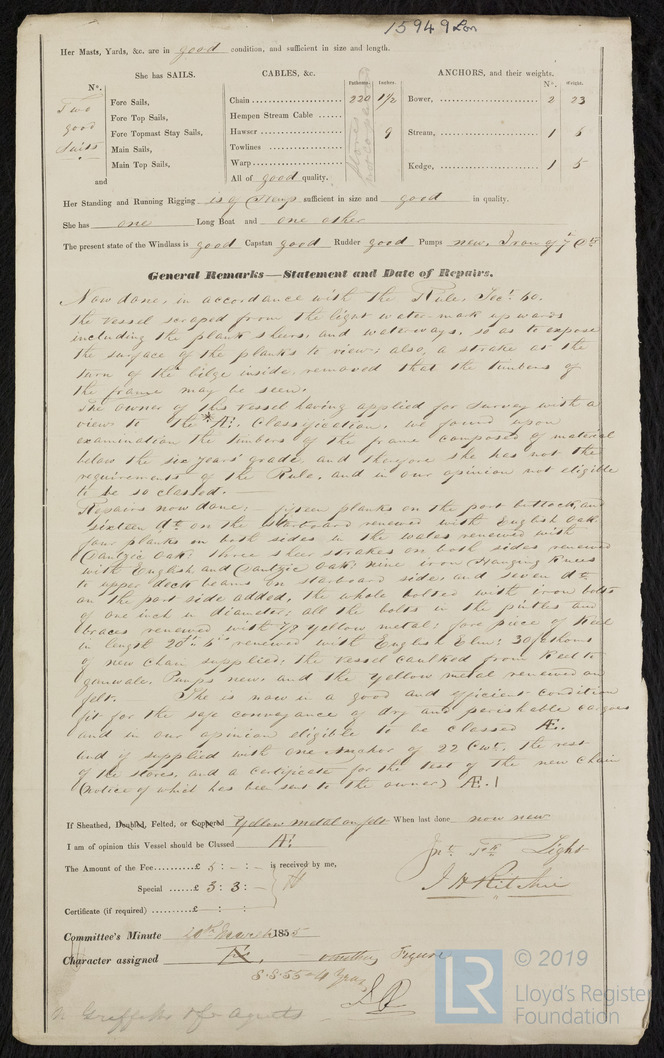 15949 Lon
Her Masts, Yards, &c. are in good condition, and sufficient in size and length.
She has SAILS.
CABLES, &c.
ANCHORS, and their weights.
N°.
Fathoms. Inches.
N°. Weight.
Two good suits
Fore Sails,
Fore Top Sails,
Fore Topmast Stay Sails,
Main Sails,
Main Top Sails,
and
Chain 220 1½
Hempen Stream Cable
Hawser 9
Towlines
Warp
All of good quality.
Bower, 2 23
Stream, 1 6
Kedge, 1 5
Her Standing and Running Rigging is of Hemp sufficient in size and good in quality.
She has one Long Boat and one other
The present state of the Windlass is good Capstan good Rudder good Pumps new, Iron of 7
General Remarks—Statement and Date of Repairs.
Now done, in accordance with the Rule, Sect. 60.
the vessel scraped from the light water mark upwards
including the plank sheers, and waterways, so as to expose
the surface of the planks to view; also, a strake at the
turn of the bilge inside removed that the timbers of
the frame may be seen.
The owner of this vessel having applied for survey with a
view to the *A1. Classification, we found upon
examination the timbers of the frame composed of material
below the six years' grade, and therefore she has not the
requirements of the Rule, and in our opinion not eligible
to be so classed.
Repairs now done; fifteen planks on the port buttock, and
sixteen do. on the starboard renewed with English Oak,
four planks on both sides in the wales renewed with
Dantzic Oak; three sheer strakes on both sides renewed
with English and Dantzic Oak; nine iron Hanging Knees
to upper deck beams on starboard side, and seven do.
on the port side added, the whole bolted with iron bolts
of one inch in diameter; all the bolts in the pintles and
braces renewed with 7/8 yellow metal; fore piece of Keel
in length 20 renewed with English Elm; 30 fathoms
of new chain supplied; the vessel caulked from Keel to
gunwale. Pumps new, and the Yellow metal renewed on
felt. She is now in a good and efficient condition
fit for the safe conveyance of dry and perishable cargoes
and in our opinion eligible to be classed Æ.
and if supplied with one Anchor of 22 Cwt, the rest
of the stores, and a Certificate for the test of the new Chain
(notice of which has been sent to the owner) Æ.1
If Sheathed, Doubled, Felted, or Coppered Yellow metal on felt When last done now new
I am of opinion this Vessel should be Classed Æ1
The Amount of the Fee £ 5 : - : - is received by me,
Special £ 3 : 3 : -
Certificate (if required) £ : :
Light
J H Ritchie
Committee's Minute 20th March 1855
Character assigned
another Figure
8.8.55-4 Years
LR
© 2019
Lloyd's Register
Foundation
Agents